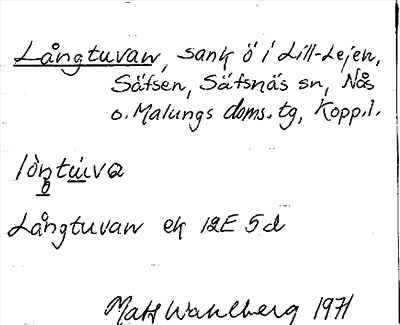 Långtuvan, sank ö i Lill-Lejen,
Säfsen, Säfsnäs sn, Nås
o. Malungs doms. tg, Kopp.l.
Långtuvan ek 12E 5d
Mats Wahlberg 1971